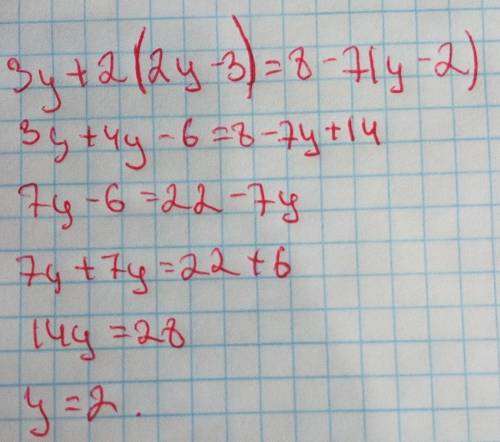 3y + 2(2y - 3) = 8 - 7(y - 2)
3y + 4y - 6 = 8 - 7y + 14
7y - 6 = 22 - 7y
7y + 7y = 22 + 6
14y = 28
y = 2.